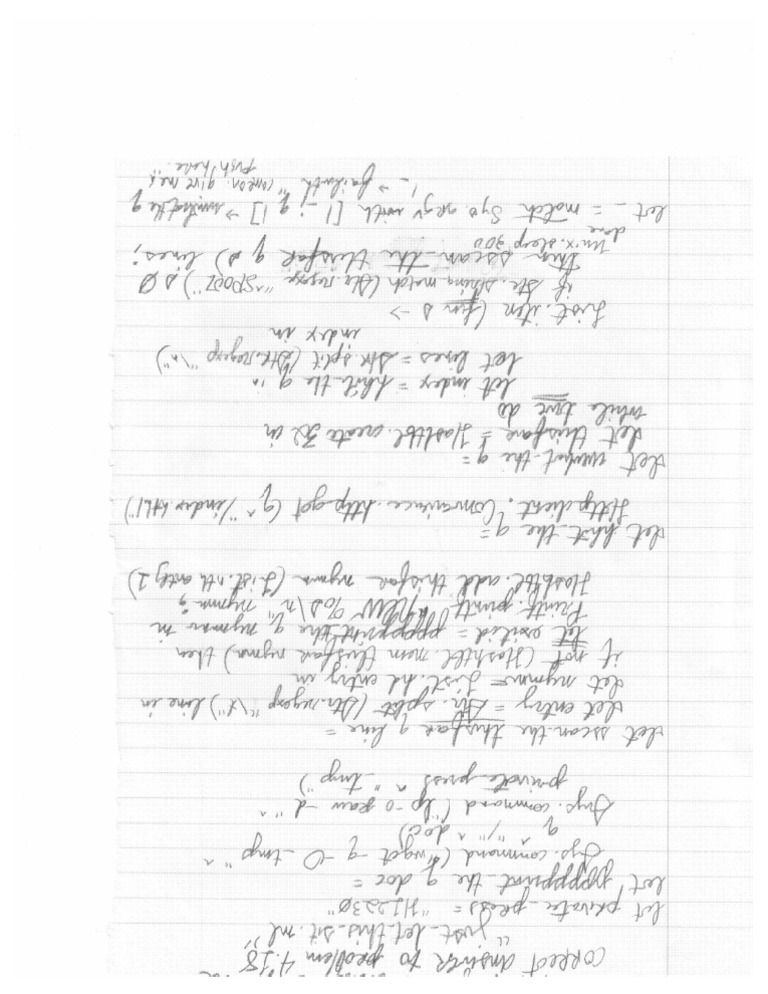 correct answer to problem 4.18
"just-let-this-sit.ml"
let private-press = "HJ2230"
let pppprint-the q doc =
Sys.command ("wget -q -O -tmp " ^
q ^ "/" ^ doc)
Sys.command ("lp -o raw -d " ^
private-press ^ " -tmp")
let sscan-the thisfar q line =
let entry = Str.split (Str.regexp "\t") line in
let nymmo = List.hd entry in
if not (Hashtbl.mem thisfar nymmo) then
let exited = pppprint-the q nymmo in
Printf.printf "%s\n" nymmo;
Hashtbl.add thisfar nymmo (List.nth entry 1)
let hhit-the q =
Http_client.Convenience.http-get (q ^ "/index.html")
let wwhat-the q =
let thisfar = Hashtbl.create 32 in
while true do
let index = hhit-the q in
let lines = Str.split (Str.regexp "\n")
index in
List.iter (fun s ->
if Str.string-match (Str.regexp "^SPOOL") s 0
then sscan-the thisfar q s) lines;
Unix.sleep 300
done
let _ = match Sys.argv with [| _; q |] -> wwhat-the q
| _ -> failwith "cmeon. give me a
push hole.